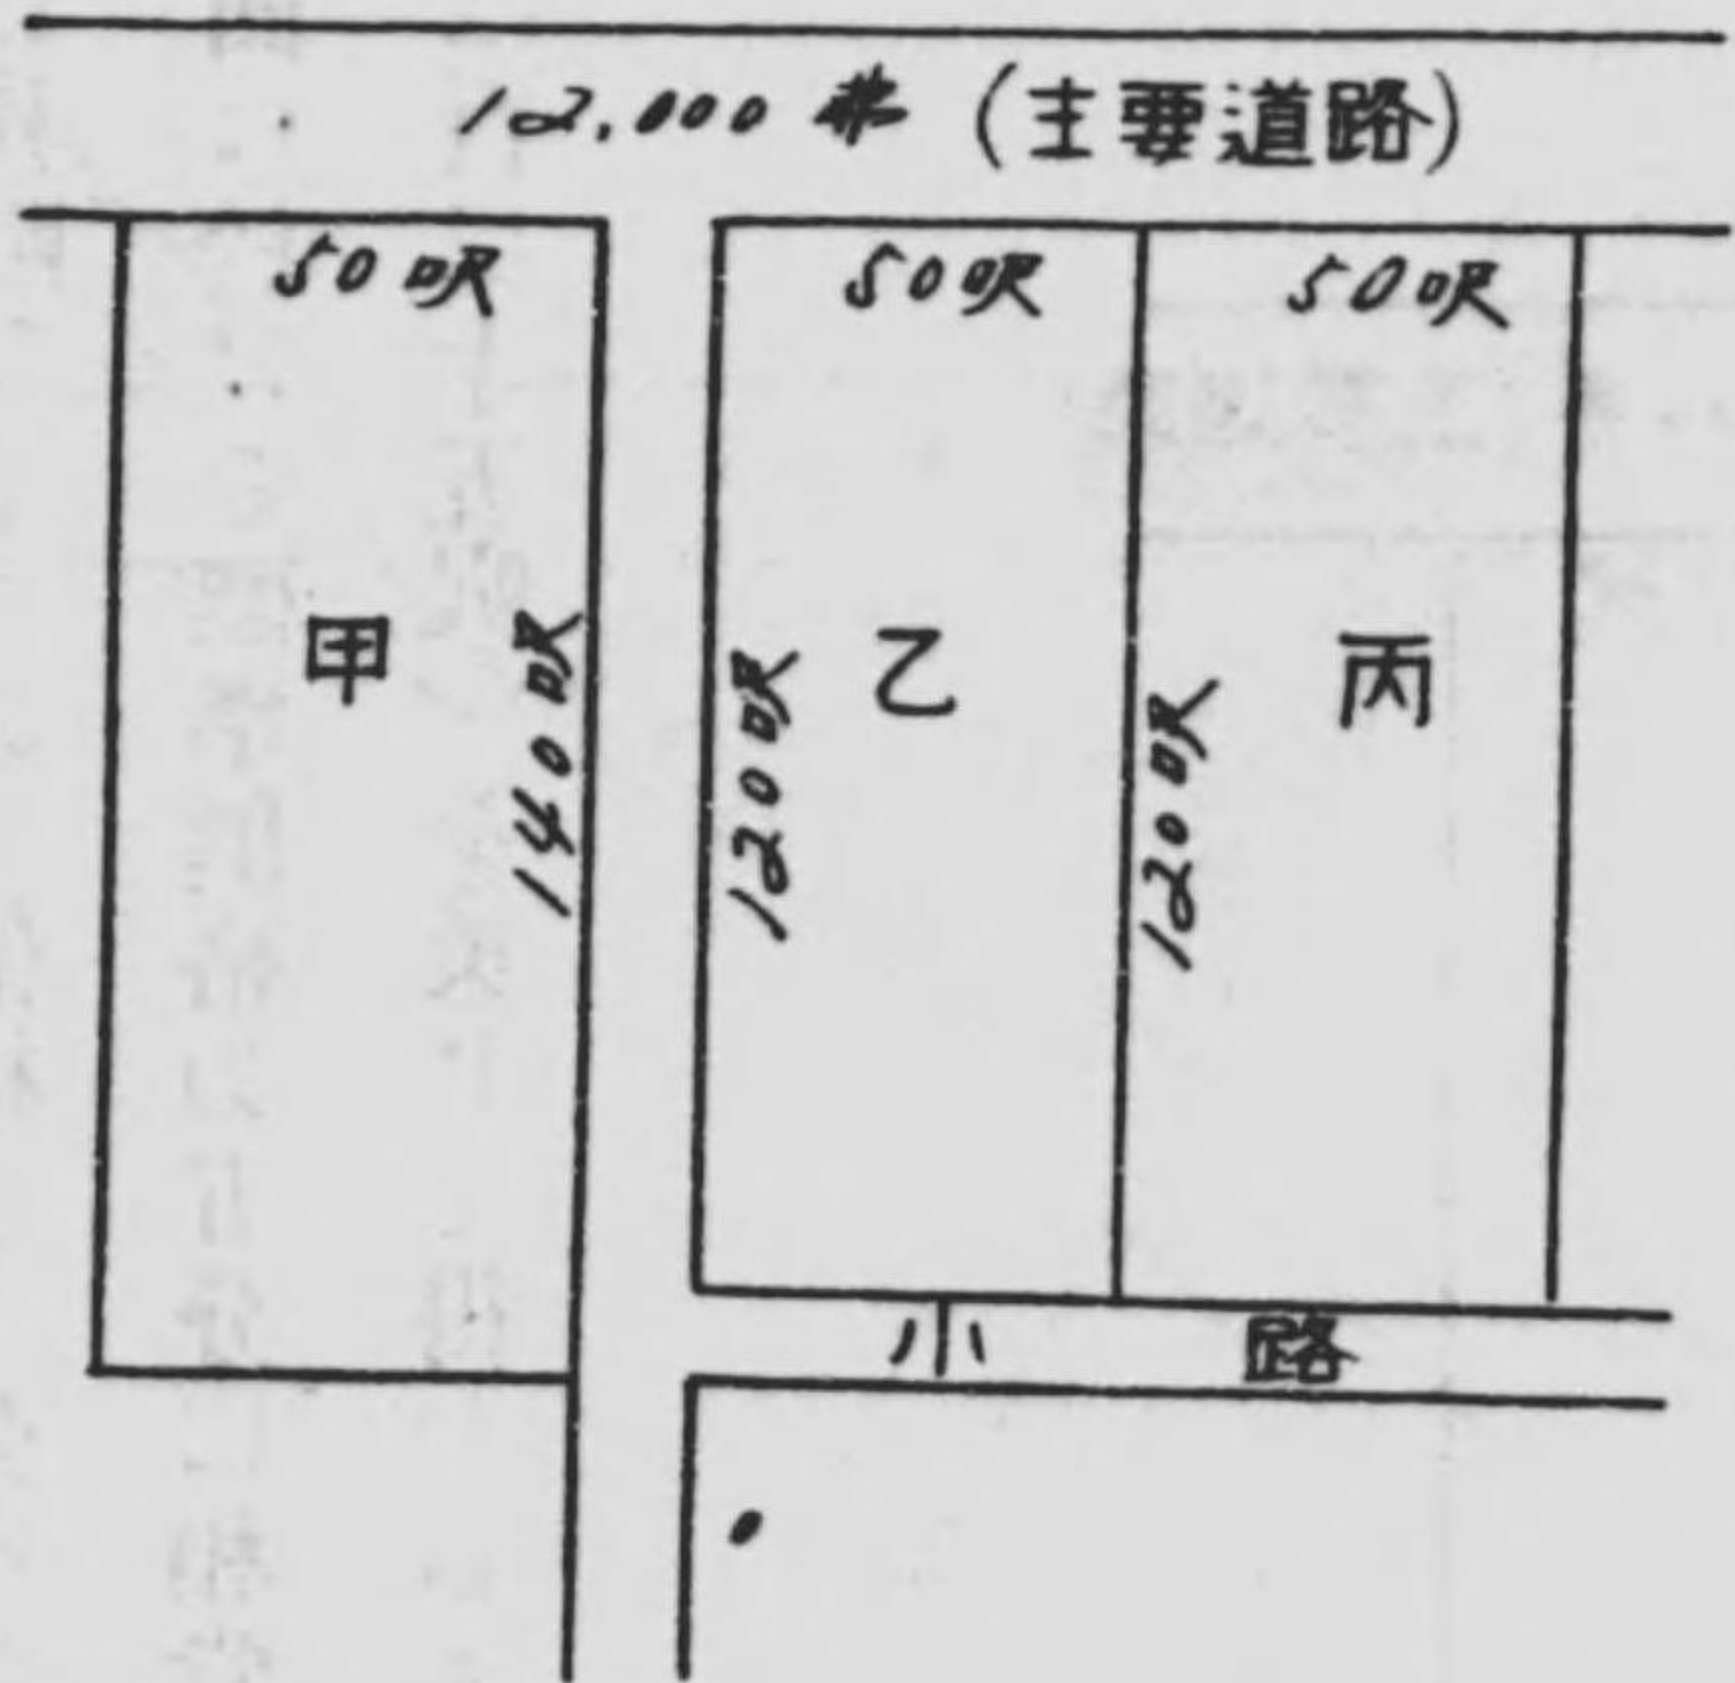 12,000 弗 (主要道路)
50呎 50呎 50呎
甲 乙 丙
140呎 120呎 120呎
小路